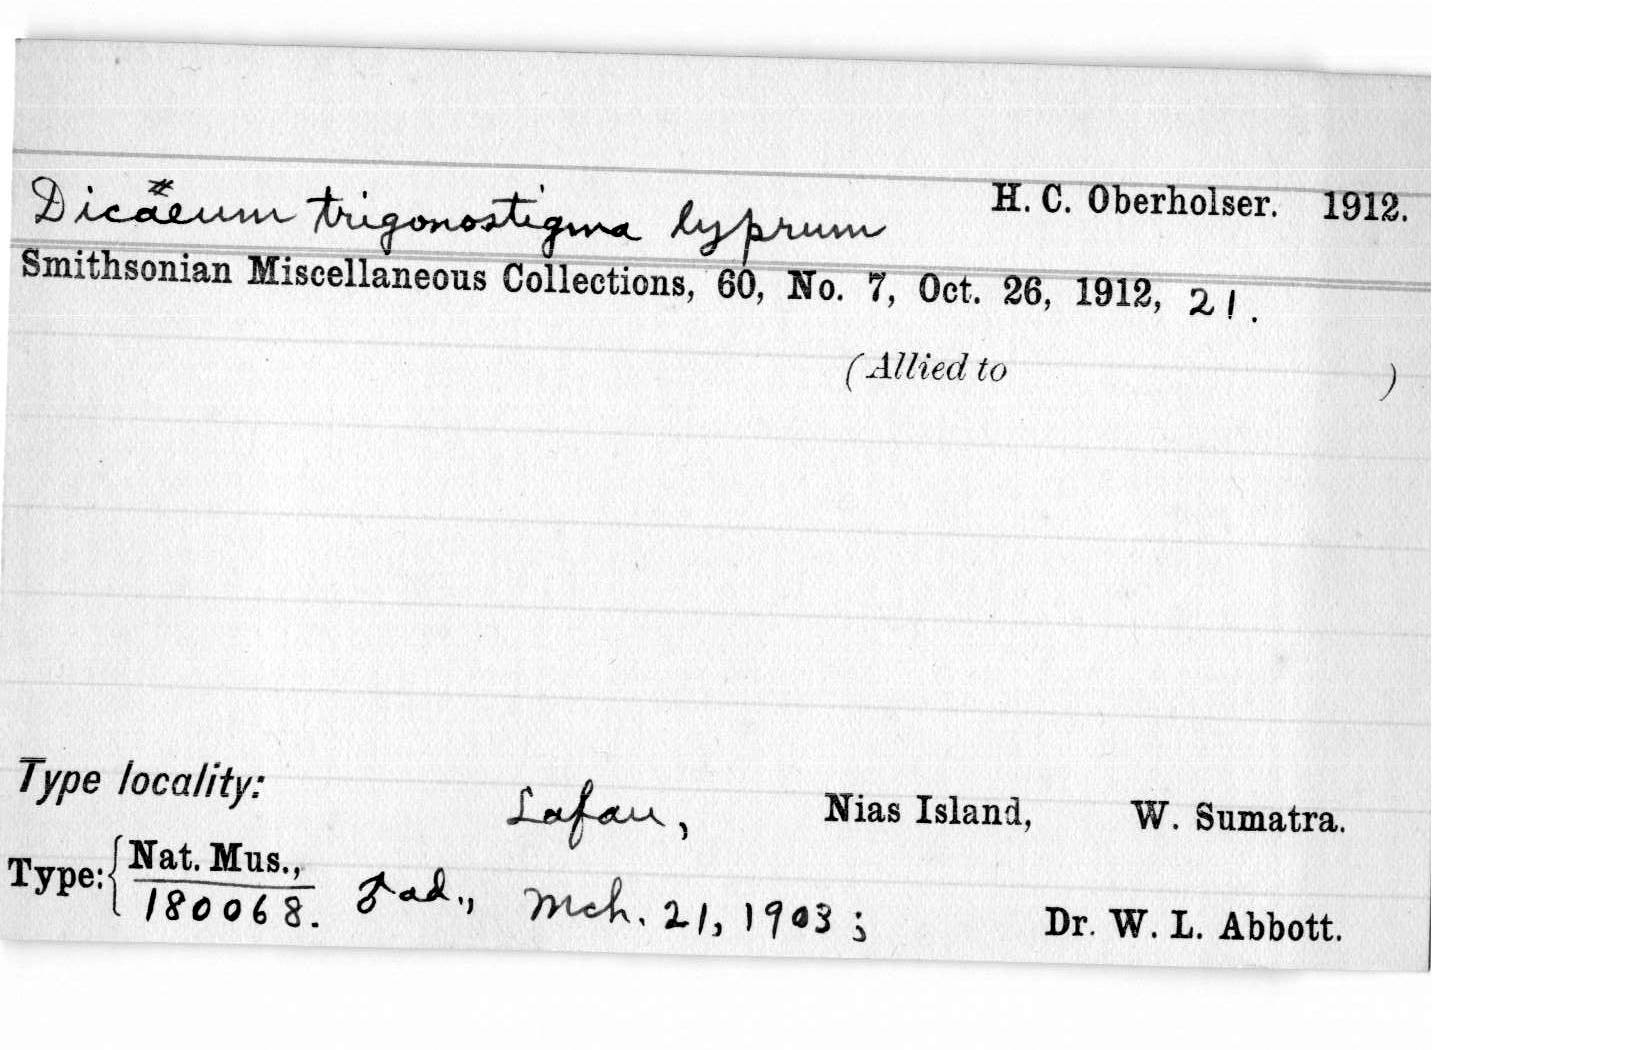 Dicaeum trigonostigma lyprum H. C. Oberholser. 1912.
Smithsonian Miscellaneous Collections, 60, No. 7, Oct. 26, 1912, 21.
(Allied to )
Type locality:
Lafau, Nias Island, W. Sumatra.
Type: { Nat. Mus.,
180068. ♂ ad., Mch. 21, 1903; Dr. W. L. Abbott.